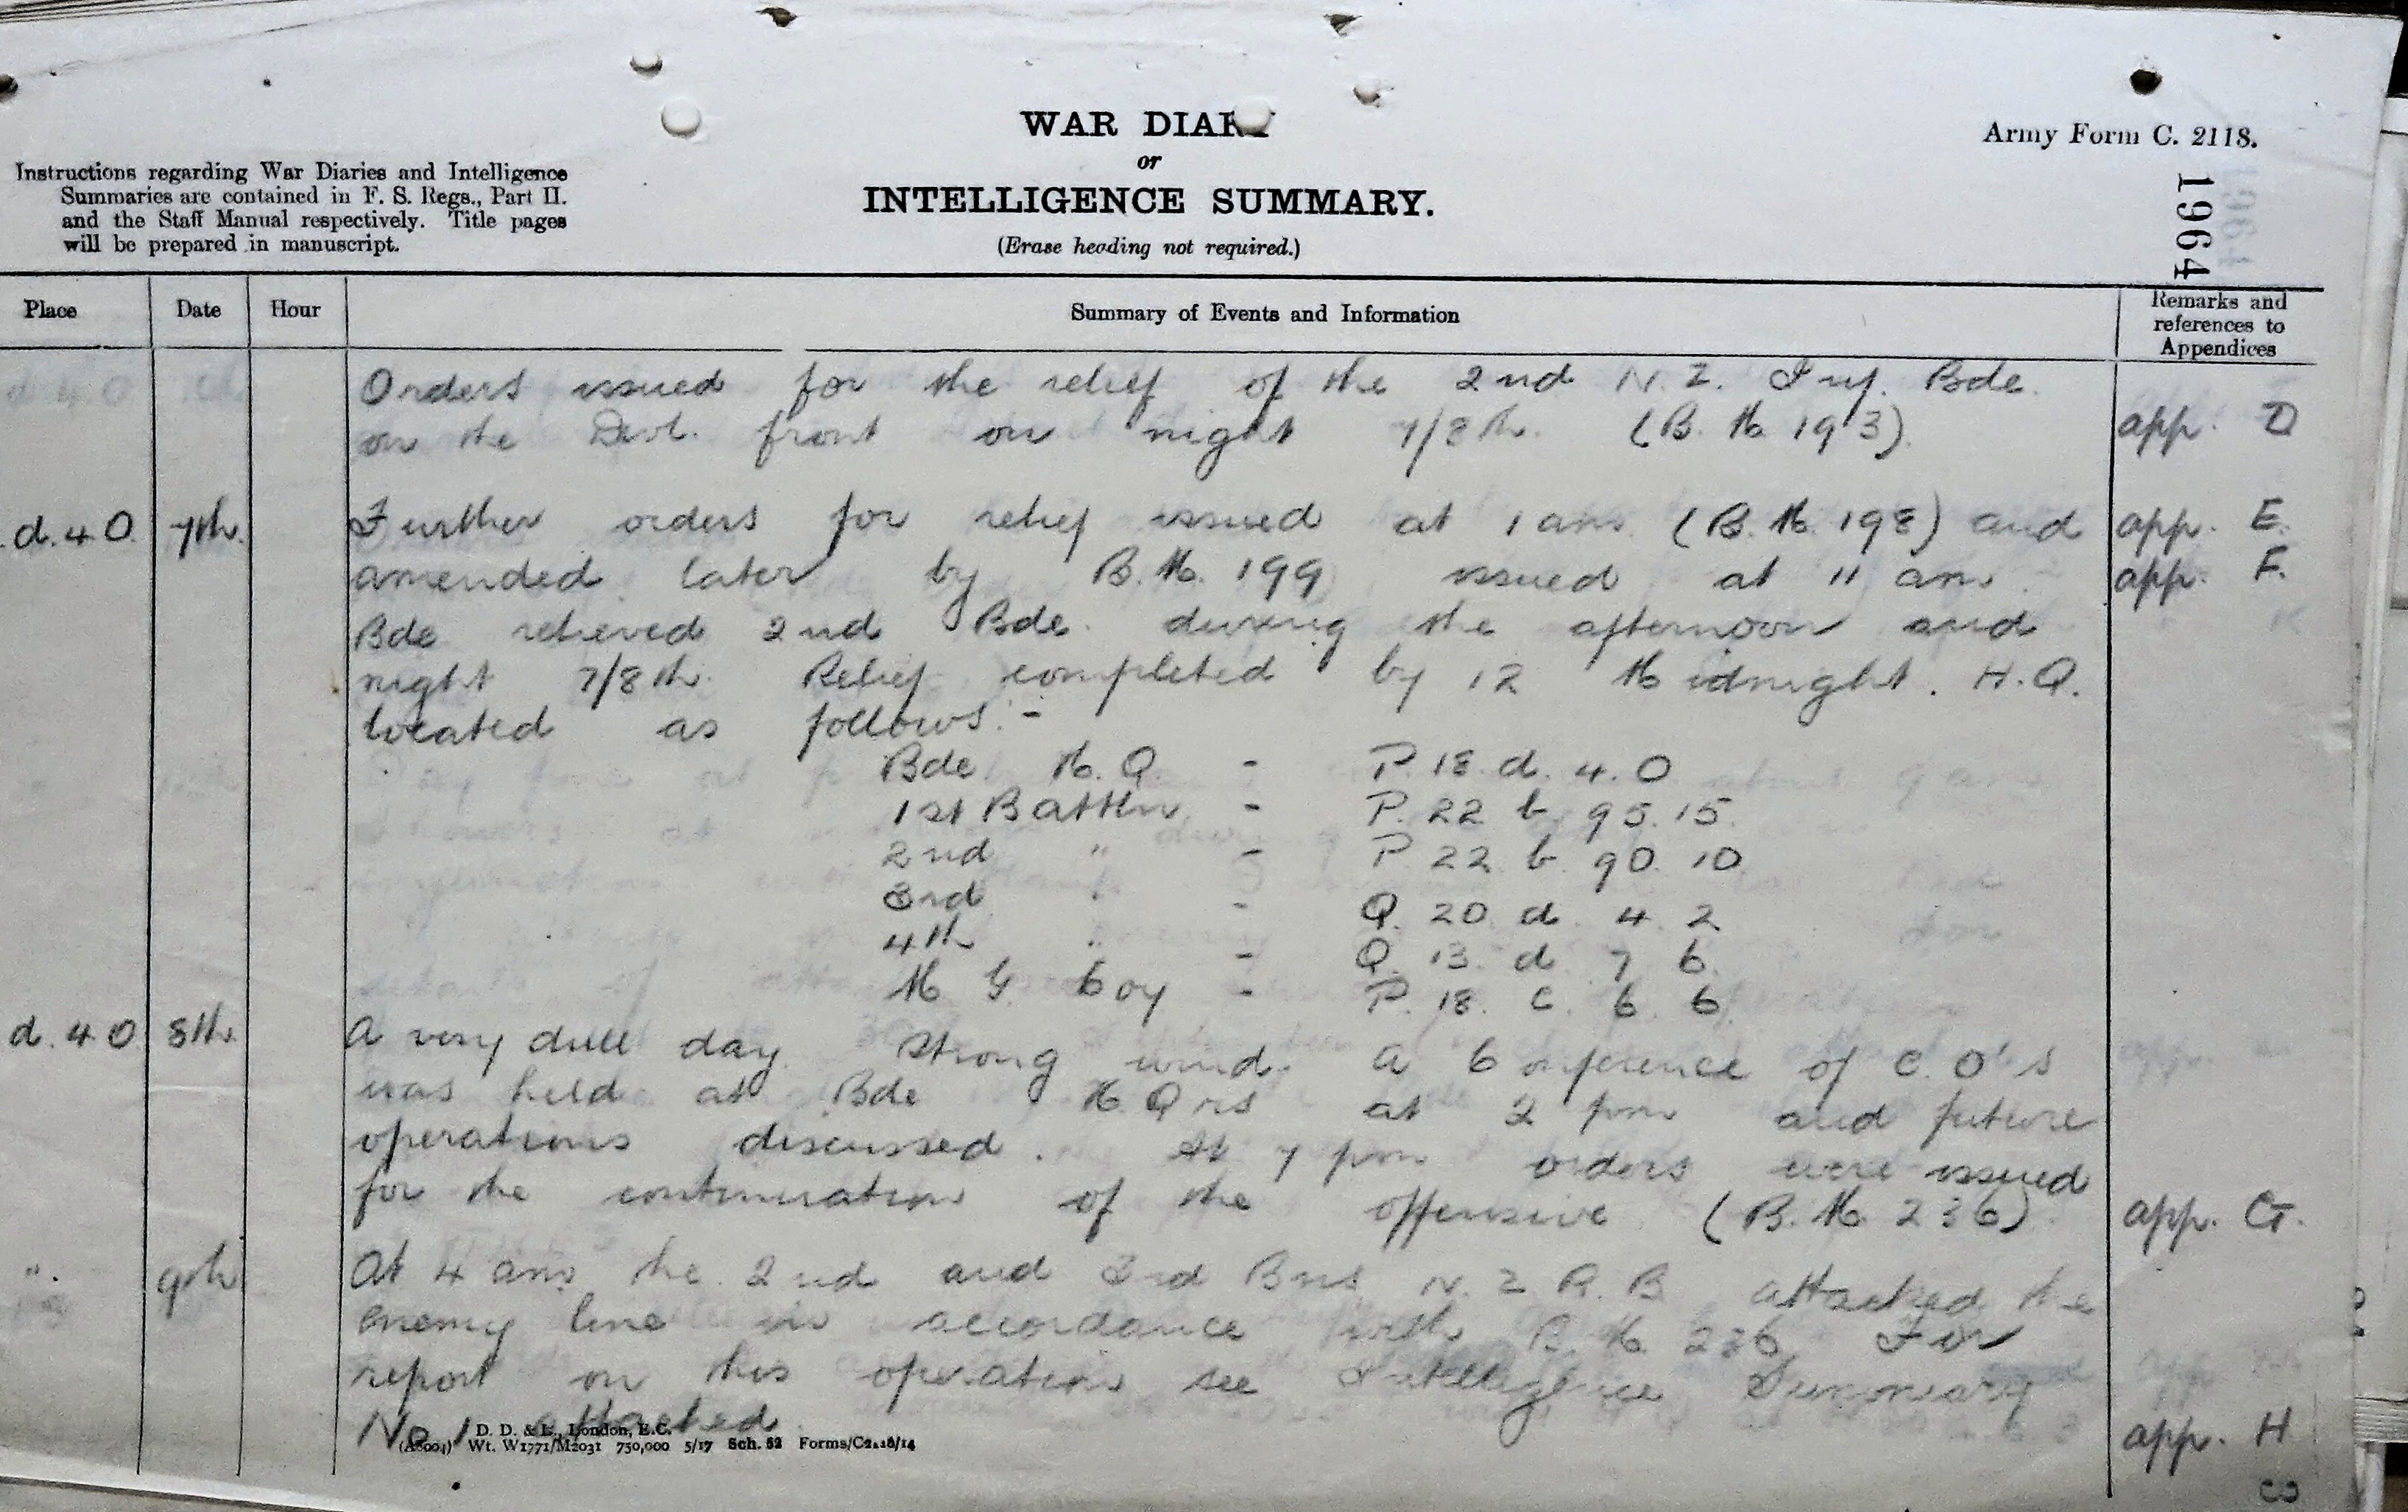 WAR DIARY
or
INTELLIGENCE SUMMARY.
(Erase heading not required.)
Army Form C. 2118.
1964
Instructions regarding War Diaries and Intelligence
Summaries are contained in F. S. Regs., Part II.
and the Staff Manual respectively. Title pages
will be prepared in manuscript.
Place Date Hour Summary of Events and Information Remarks and references to Appendices
Orders issued for the relief of the 2nd N.Z. Inf. Bde.
on the Divl. front on night 7/8th. (B.M. 193). app. D
d.4.0. 7th. Further orders for relief issued at 1 am. (B.M. 198) and app. E.
amended later by B.M. 199 issued at 11 am. app. F.
Bde relieved 2nd Bde. during the afternoon and
night 7/8th. Relief completed by 12 Midnight. H.Q.
located as follows:-
Bde H.Q. - P.18.d.4.0
1st Battln - P.22.b.95.15.
2nd " - P.22.b.90.10
3rd " - Q.20.d.4.2
4th " - Q.13.d.7.6.
M G Coy - P.18.c.6.6.
d.4.0 8th. A very dull day. Strong wind. A Conference of C.O's
was held at Bde H.Qrs at 2 pm and future
operations discussed. At 7 pm orders were issued
for the continuation of the offensive (B.M. 236). app. G.
". 9th At 4 am the 2nd and 3rd Bns N.Z.R.B attacked the
enemy line in accordance with B.M. 236 For
report on this operation see Intelligence Summary
No 1 attached. app. H
D. D. & L., London, E.C.
(A8004) Wt. W1771/M2031 750,000 5/17 Sch. 52 Forms/C2118/14